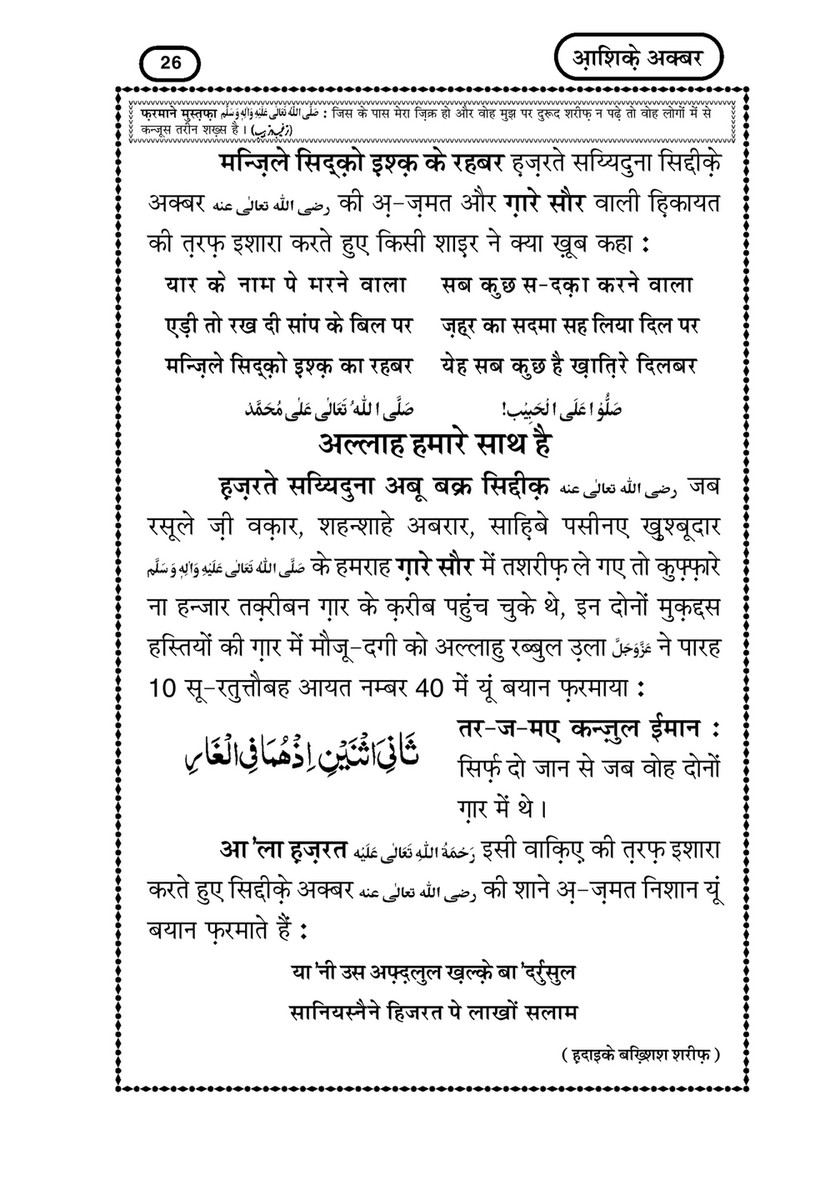 26
आ़शिक़े अक्बर
फ़रमाने मुस्त़फ़ा صَلَّى اللهُ تَعَالٰى عَلَيْهِ وَاٰلِهٖ وَسَلَّم : जिस के पास मेरा ज़िक्र हो और वोह मुझ पर दुरूद शरीफ़ न पढ़े तो वोह लोगों में से
कन्जूस तरीन शख़्स है ।
मन्ज़िले सिद्क़ो इश्क़ के रहबर ह़ज़रते सय्यिदुना सिद्दीक़े
अक्बर رضى الله تعالى عنه की अ़-ज़मत और ग़ारे सौर वाली ह़िकायत
की त़रफ़ इशारा करते हुए किसी शाइ़र ने क्या ख़ूब कहा :
यार के नाम पे मरने वाला सब कुछ स-दक़ा करने वाला
एड़ी तो रख दी सांप के बिल पर ज़ह्र का सदमा सह लिया दिल पर
मन्ज़िले सिद्क़ो इश्क़ का रहबर येह सब कुछ है ख़ात़िरे दिलबर
صَلُّوْا عَلَى الْحَبِيْب! صَلَّى اللهُ تَعَالٰى عَلٰى مُحَمَّد
अल्लाह हमारे साथ है
ह़ज़रते सय्यिदुना अबू बक्र सिद्दीक़ رضى الله تعالى عنه जब
रसूले ज़ी वक़ार, शहन्शाहे अबरार, साह़िबे पसीनए ख़ुश्बूदार
صَلَّى اللهُ تَعَالٰى عَلَيْهِ وَاٰلِهٖ وَسَلَّم के हमराह ग़ारे सौर में तशरीफ़ ले गए तो कुफ़्फ़ारे
ना हन्जार तक़्रीबन ग़ार के क़रीब पहुंच चुके थे, इन दोनों मुक़द्दस
हस्तियों की ग़ार में मौजू-दगी को अल्लाहु रब्बुल उ़ला عَزَّوَجَلَّ ने पारह
10 सू-रतुत्तौबह आयत नम्बर 40 में यूं बयान फ़रमाया :
ثَانِيَ اثْنَيْنِ اِذْ هُمَا فِي الْغَارِ
तर-ज-मए कन्ज़ुल ईमान :
सिर्फ़ दो जान से जब वोह दोनों
ग़ार में थे ।
आ'ला ह़ज़रत رَحْمَةُ اللهِ تَعَالٰى عَلَيْه इसी वाक़िए की त़रफ़ इशारा
करते हुए सिद्दीक़े अक्बर رضى الله تعالى عنه की शाने अ़-ज़मत निशान यूं
बयान फ़रमाते हैं :
या'नी उस अफ़्ज़लुल ख़ल्क़े बा'दर्रुसुल
सानियस्नैने हिजरत पे लाखों सलाम
( ह़दाइके बख़्शिश शरीफ़ )